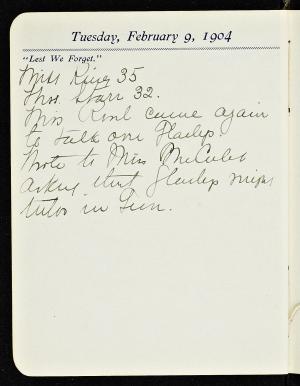 Tuesday, February 9, 1904
"Lest We Forget."
Miss King 35
Thos. Starr 32.
Mrs came again
to talk over Gladys.
Wrote to Miss McCaleb
asking that Gladys might
tutor in